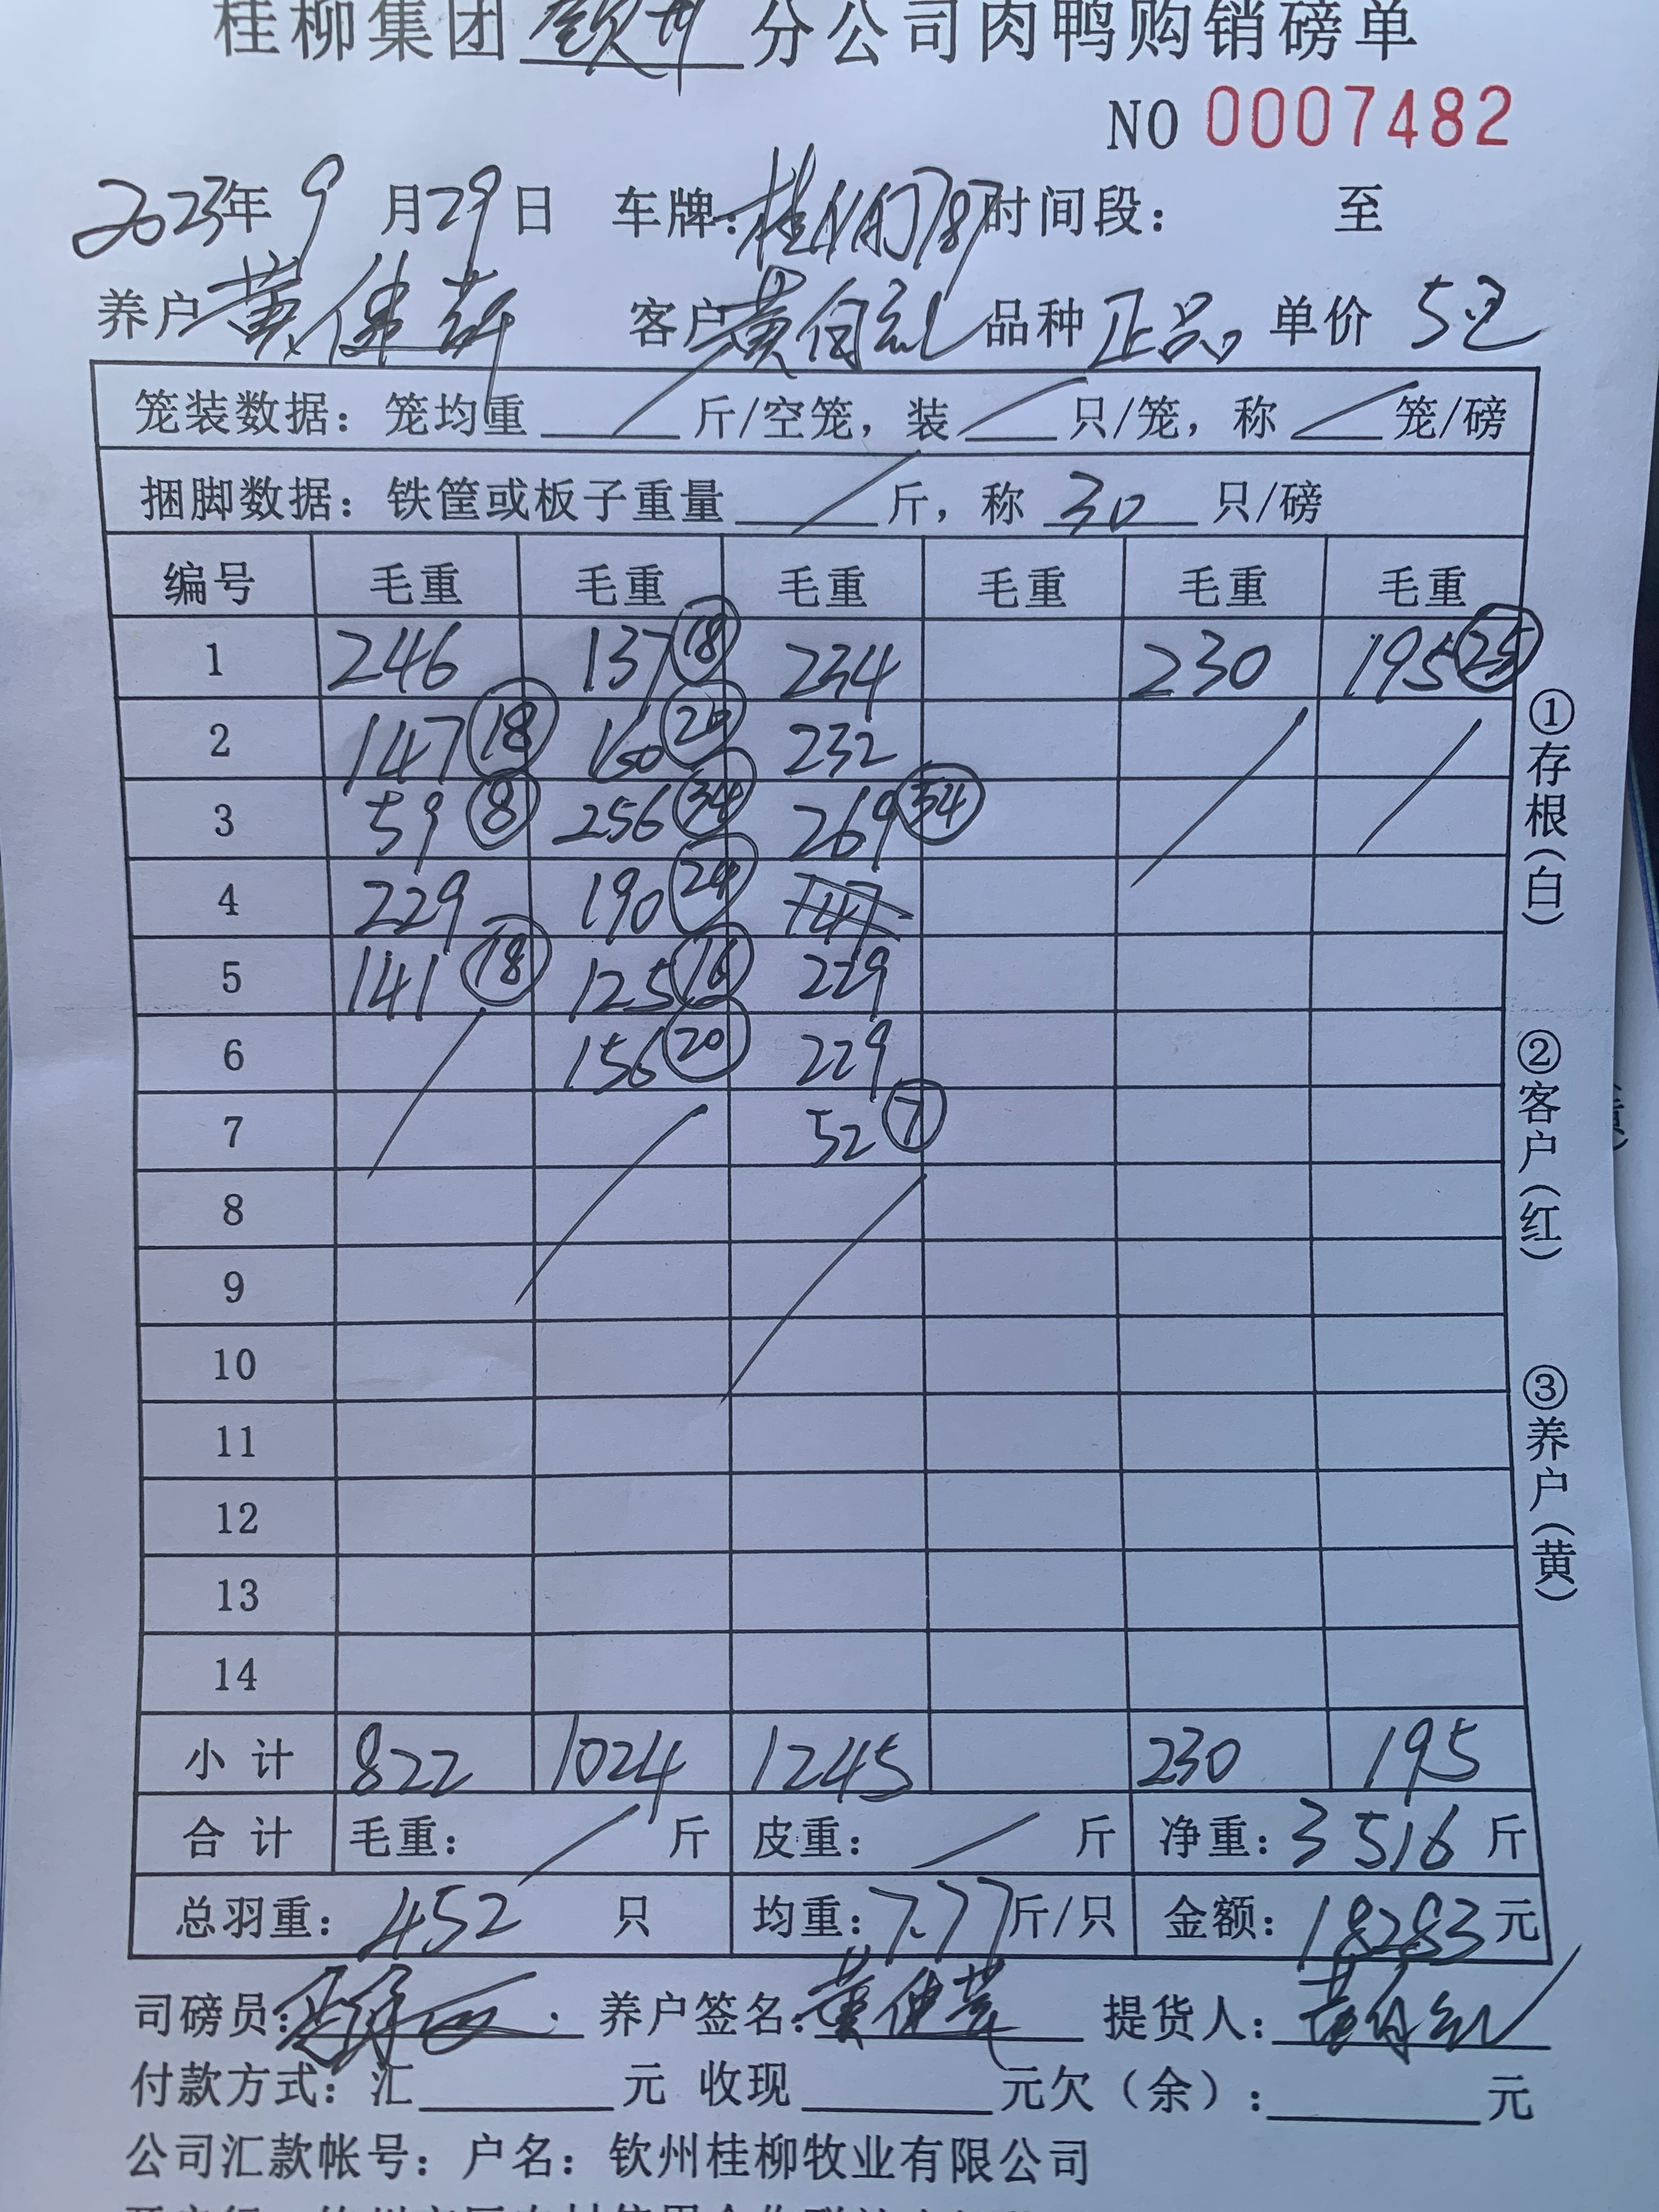 桂柳集团钦州分公司肉鸭购销磅单
NO 0007482
2023年 9 月 29 日 车牌: 时间段: 至
养户 黄 客户 黄 品种 正品 单价 5.2
笼装数据: 笼均重 / 斤/空笼, 装 / 只/笼, 称 / 笼/磅
捆脚数据: 铁筐或板子重量 / 斤, 称 30 只/磅
编号 毛重 毛重 毛重 毛重 毛重 毛重
1 246 137 ⑱ 234 230 195 ㉕
2 147 ⑱ 160 232
3 59 ⑧ 256 ㉞ 269 ㉞
4 229 190 ㉔ 147
5 141 ⑱ 125 ⑯ 229
6 156 ⑳ 229
7 52 ⑦
8
9
10
11
12
13
14
小计 822 1024 1245 230 195
合计 毛重: / 斤 皮重: / 斤 净重: 3516 斤
总羽重: 452 只 均重: 7.77 斤/只 金额: 18283 元
司磅员: 养户签名: 黄 提货人: 黄
付款方式: 汇 元 收现 元 欠(余): 元
公司汇款帐号: 户名: 钦州桂柳牧业有限公司
①存根(白)
②客户(红)
③养户(黄)